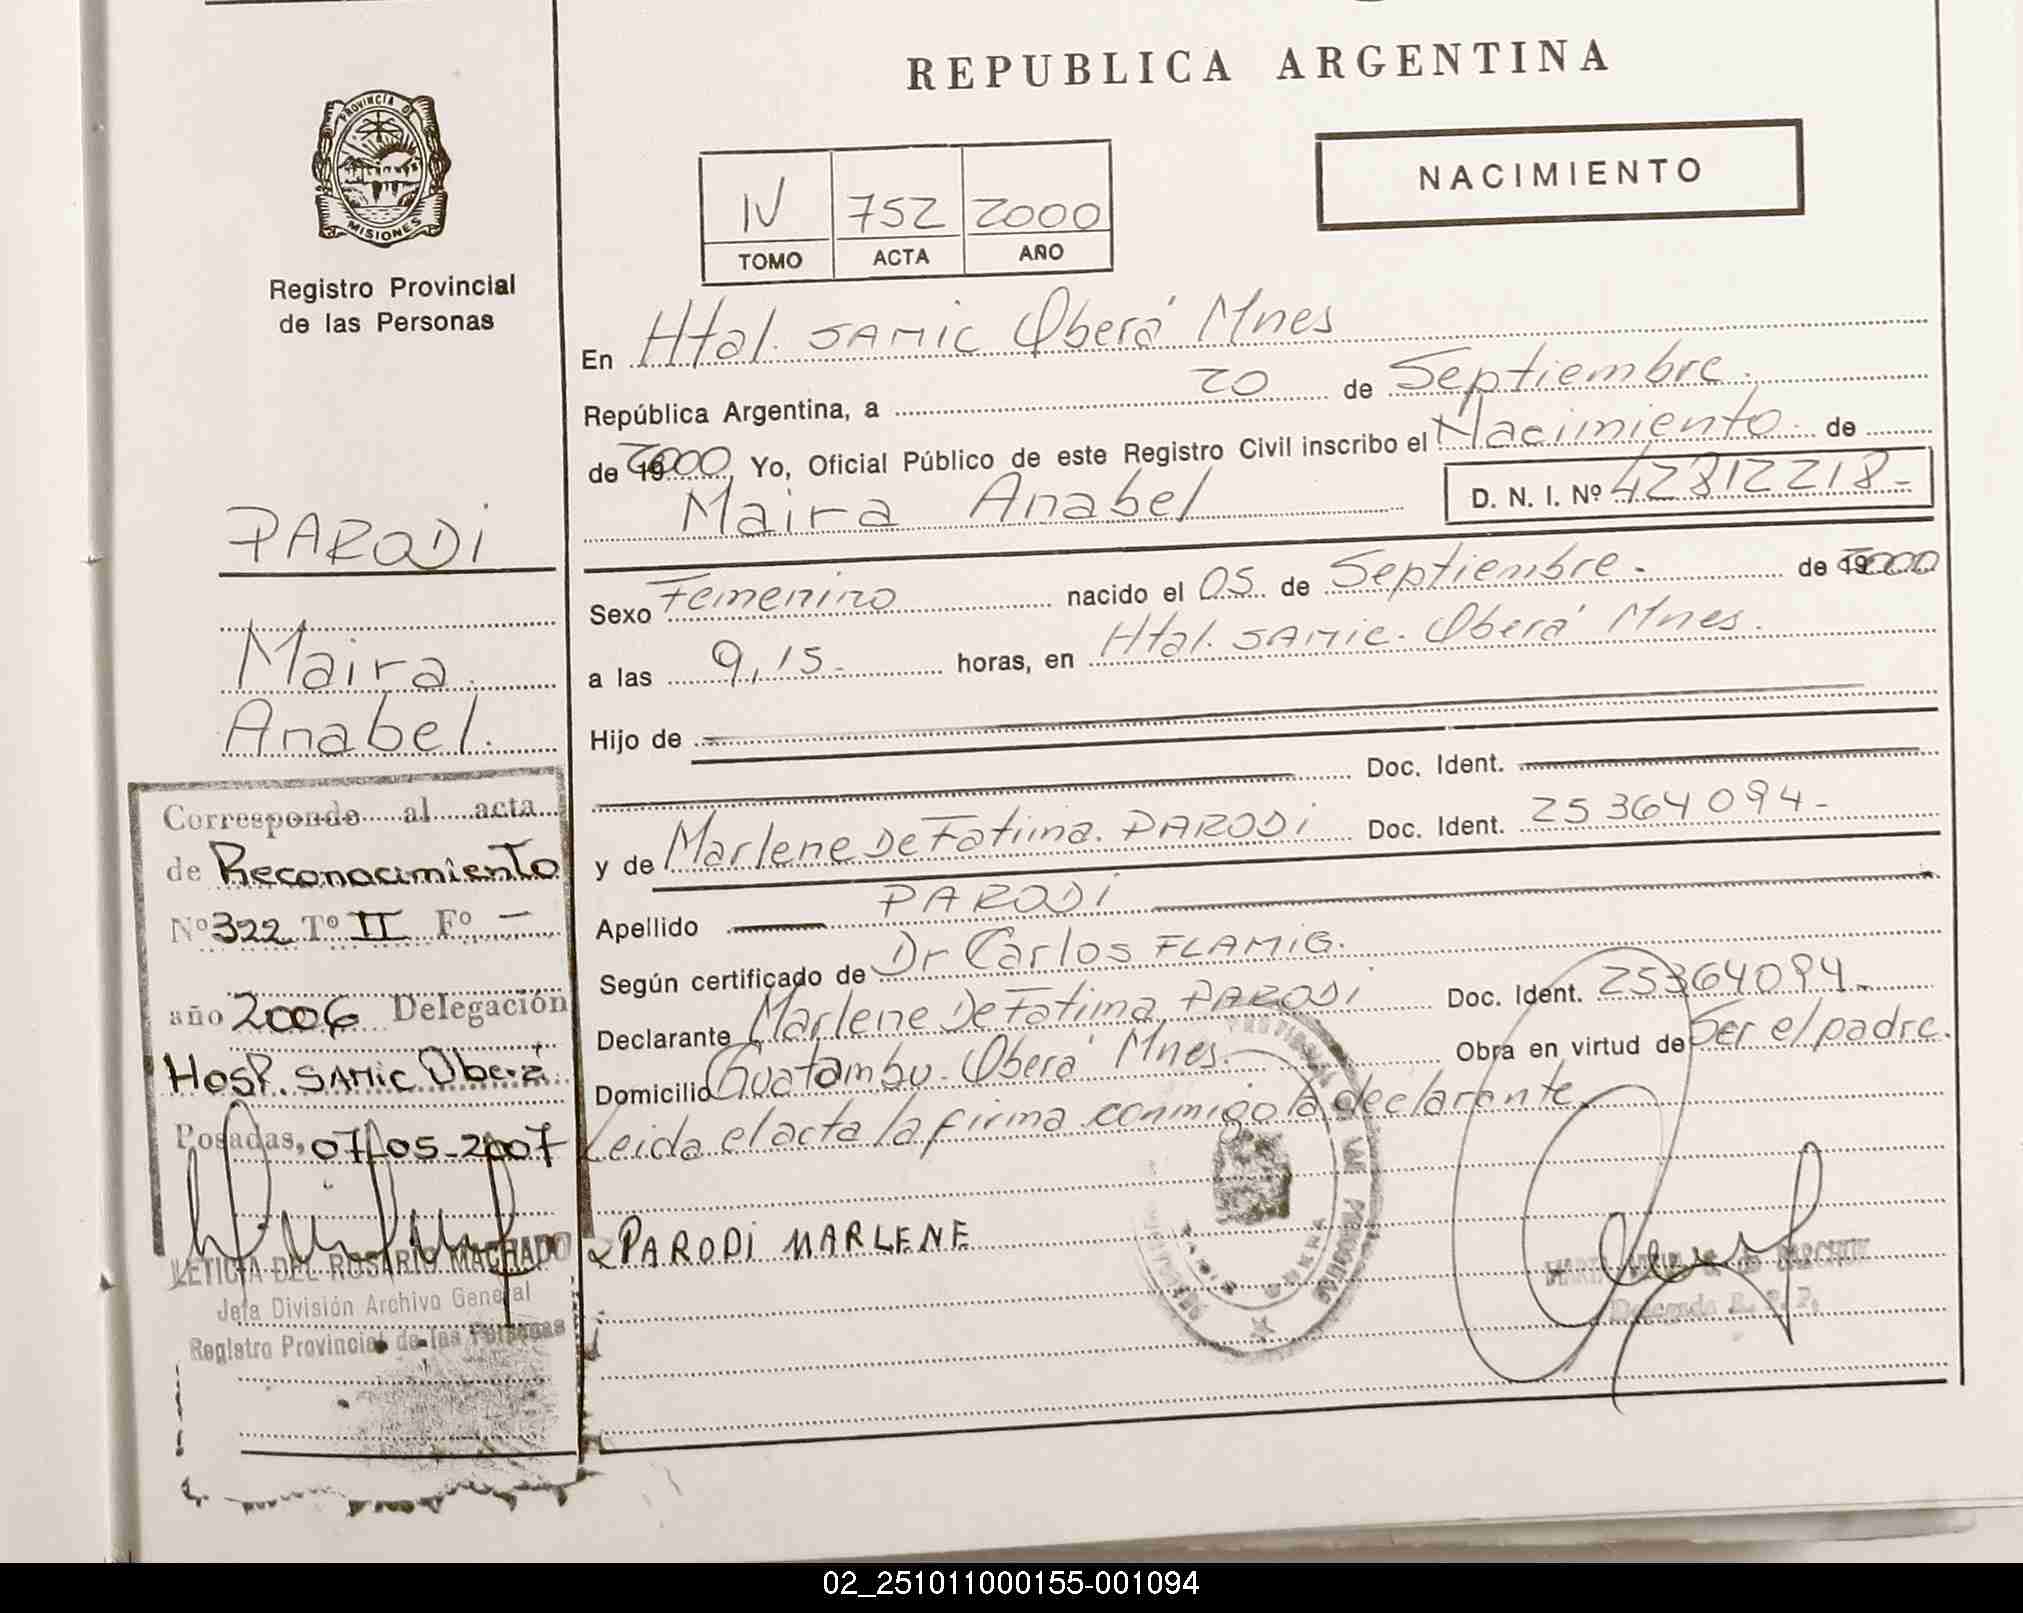 REPUBLICA ARGENTINA
PROVINCIA DE
MISIONES
Registro Provincial
de las Personas
NACIMIENTO
IV 752 2000
TOMO ACTA AÑO
En Htal. SAMIC Oberá Mnes
República Argentina, a 20 de Septiembre.
de 2000 Yo, Oficial Público de este Registro Civil inscribo el Nacimiento de
Maira Anabel D. N. I. Nº 42812218-
PARODi
Maira
Anabel.
Sexo Femenino nacido el 05 de Septiembre. de 2000
a las 9,15- horas, en Htal. SAMIC. Oberá Mnes.
Hijo de
Doc. Ident.
y de Marlene De Fatima. PARODi Doc. Ident. 25364094-
Apellido PARODi
Según certificado de Dr Carlos FLAMiG.
Declarante Marlene De Fatima PARODi Doc. Ident. 25364094-
Domicilio Guatambu. Oberá Mnes. Obra en virtud de Ser el padre.
Leida el acta la firma conmigo la declarante.
PARODi MARLENE
Corresponde al acta
de Reconocimiento
Nº 322 Tº II Fº —
año 2006 Delegación
Hosp. SAMIC Oberá
Posadas, 07-05-2007
LETICIA DEL ROSARIO MACHADO
Jefa División Archivo General
Registro Provincial de las Personas
02_251011000155-001094